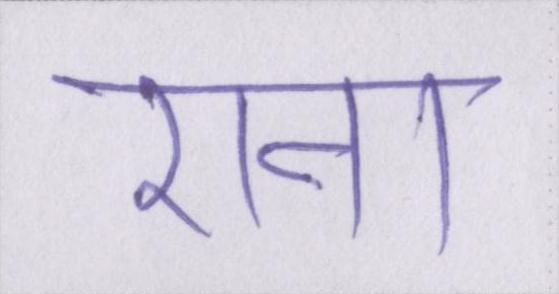 राना